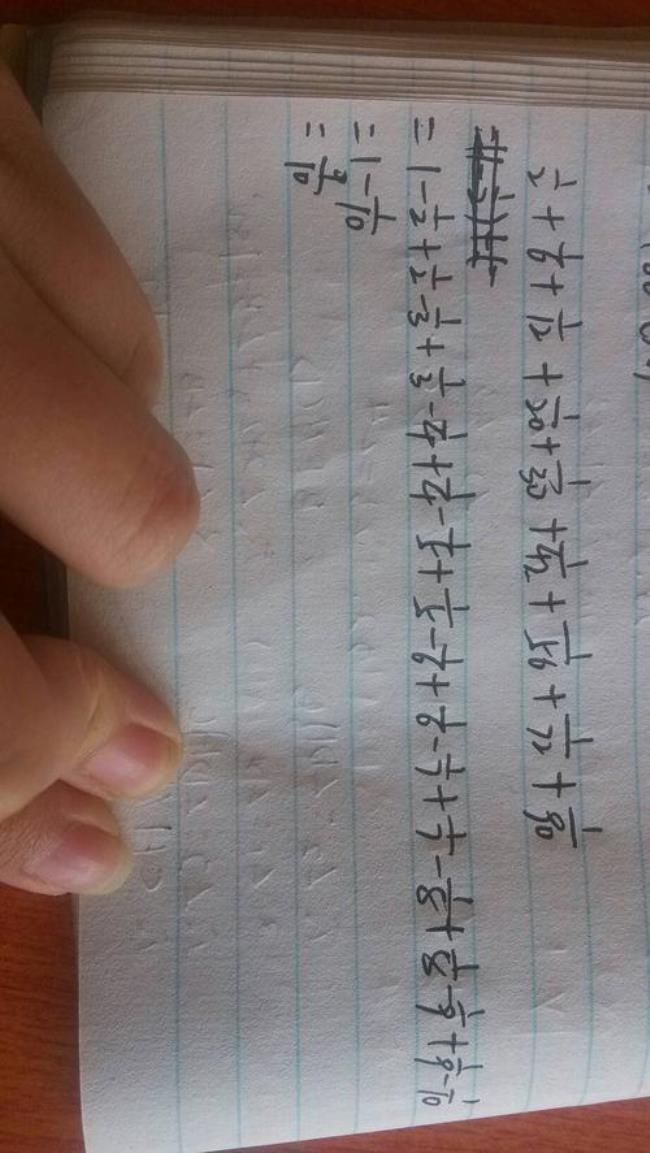 1/2 + 1/6 + 1/12 + 1/20 + 1/30 + 1/42 + 1/56 + 1/72 + 1/90
= 1 - 1/2 + 1/2 - 1/3 + 1/3 - 1/4 + 1/4 - 1/5 + 1/5 - 1/6 + 1/6 - 1/7 + 1/7 - 1/8 + 1/8 - 1/9 + 1/9 - 1/10
= 1 - 1/10
= 9/10